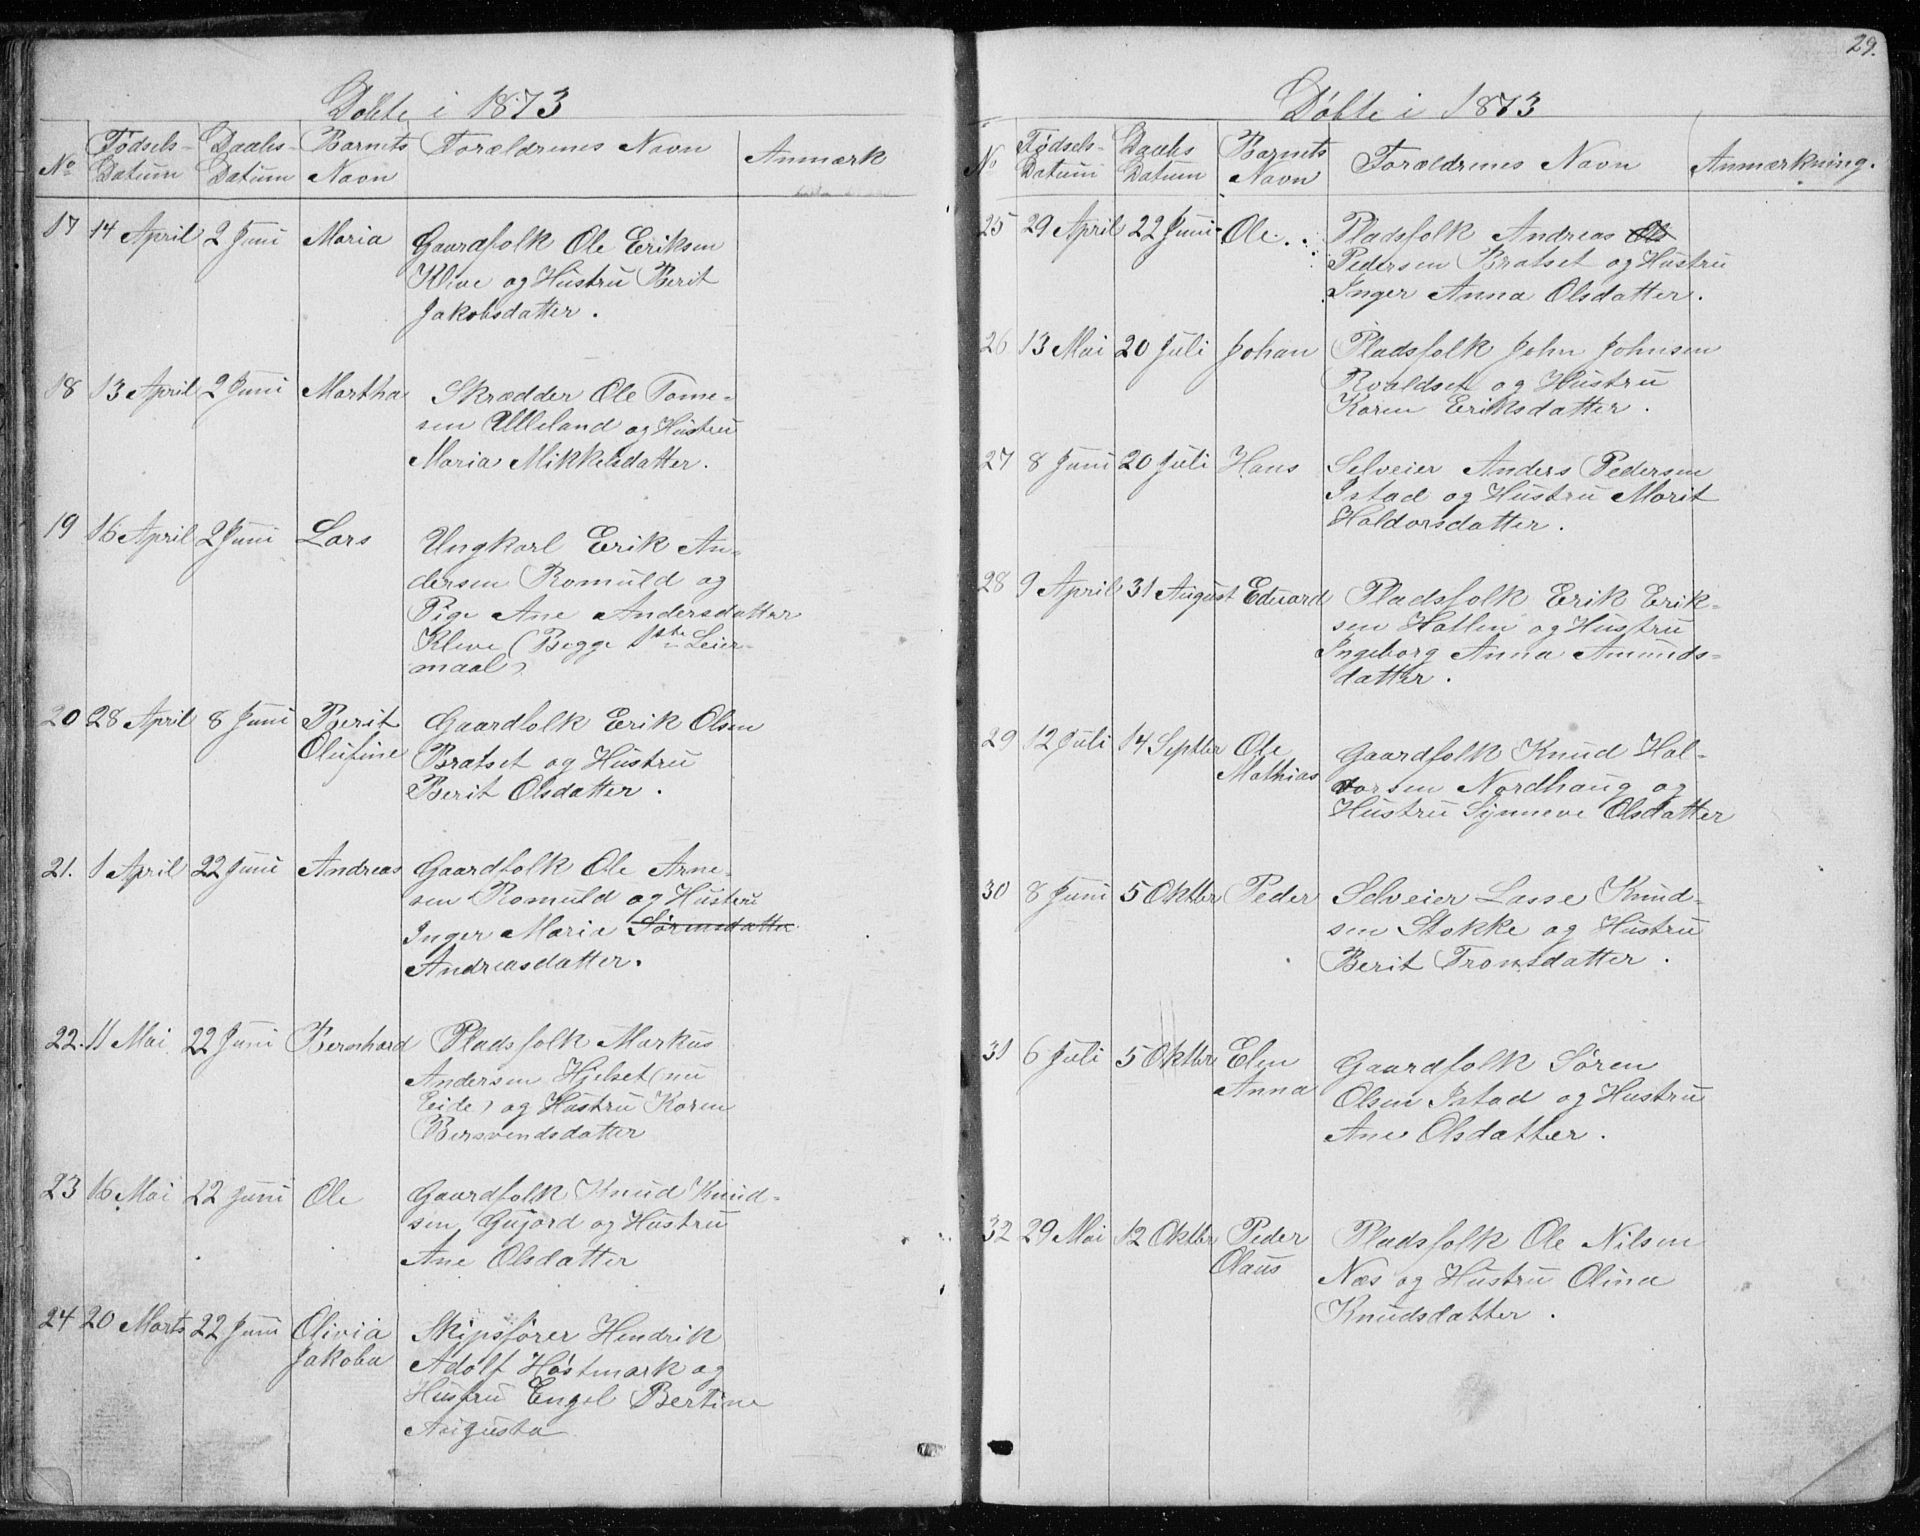 Døbte i 1873
No Fødsels- Daabs- Barnets Forældrenes Navn Anmærk
Datum Datum Navn
17 14 April 2 Juni Maria Gaardfolk Ole Eriksen
Klive og Hustru Berit
Jakobsdatter.
18 13 April 2 Juni Martha Skrædder Ole Tome-
sen Ulleland og Hustru
Maria Mikkelsdatter.
19 16 April 2 Juni Lars Ungkarl Erik An-
dersen Romuld og
Pige Ane Andersdatter
Kleve (Begge 1ste Leier-
maal)
20 28 April 8 Juni Berit Gaardfolk Erik Olsen
Olufine Bratset og Hustru
Berit Olsdatter.
21. 1 April 22 Juni Andreas Gaardfolk Ole Arne-
sen Romuld og Hustru
Inger Maria Sørensdatter
Andreasdatter.
22. 11 Mai 22 Juni Bernhard Pladsfolk Markus
Andersen Hjelset (nu
Eide) og Hustru Karen
Bersvendsdatter
23 16 Mai 22 Juni Ole Gaardfolk Knud Knud-
sen Gujord og Hustru
Ane Olsdatter
24 20 Marts 22 Juni Olivia Skipsfører Hendrik
Jakoba Adolf Høstmark og
Hustru Engel Bertine
Augusta
29.
Døbte i 1873
No Fødsels- Daabs Barnets Forældrenes Navn Anmærkning.
Datum Datum Navn
25 29 April 22 Juni Ole. Pladsfolk Andreas Ols
Pedersen Bratset og Hustru
Inger Anna Olsdatter.
26 13 Mai 20 Juli Johan Pladsfolk John Johnsen
Roaldset og Hustru
Karen Eriksdatter.
27 8 Juni 20 Juli Hans Selveier Anders Pedersen
Istad og Hustru Marit
Haldorsdatter.
28 9 April 31 August Eduard Pladsfolk Erik Erik-
sen Hatlen og Hustru
Ingeborg Anna Amunds-
datter.
29 12 Juli 14 Septber Ole Gaardfolk Knud Hal-
Mathias dorsen Nordhaug og
Hustru Synneve Olsdatter
30 8 Juni 5 Oktbr Peder Selveier Lasse Knud-
sen Stokke og Hustru
Berit Tronsdatter.
31 6 Juli 5 Oktbr Elen Gaardfolk Søren
Anna Olsen Istad og Hustru
Ane Olsdatter.
32 29 Mai 12 Oktbr Peder Pladsfolk Ole Nilsen
Olaus Næs og Hustru Olina
Knudsdatter.